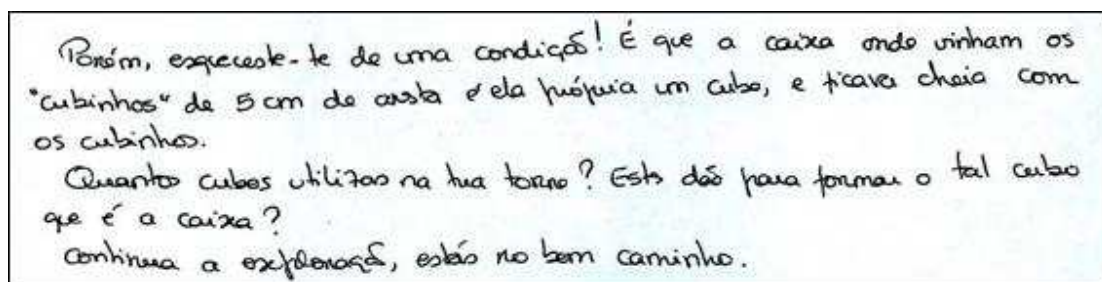 Porém, esqueceste-te de uma condição! É que a caixa onde vinham os
"cubinhos" de 5 cm de aresta é ela própria um cubo, e ficava cheia com
os cubinhos.
Quantos cubos utilizas na tua torre? Estes dão para formar o tal cubo
que é a caixa?
Continua a exploração, estás no bom caminho.